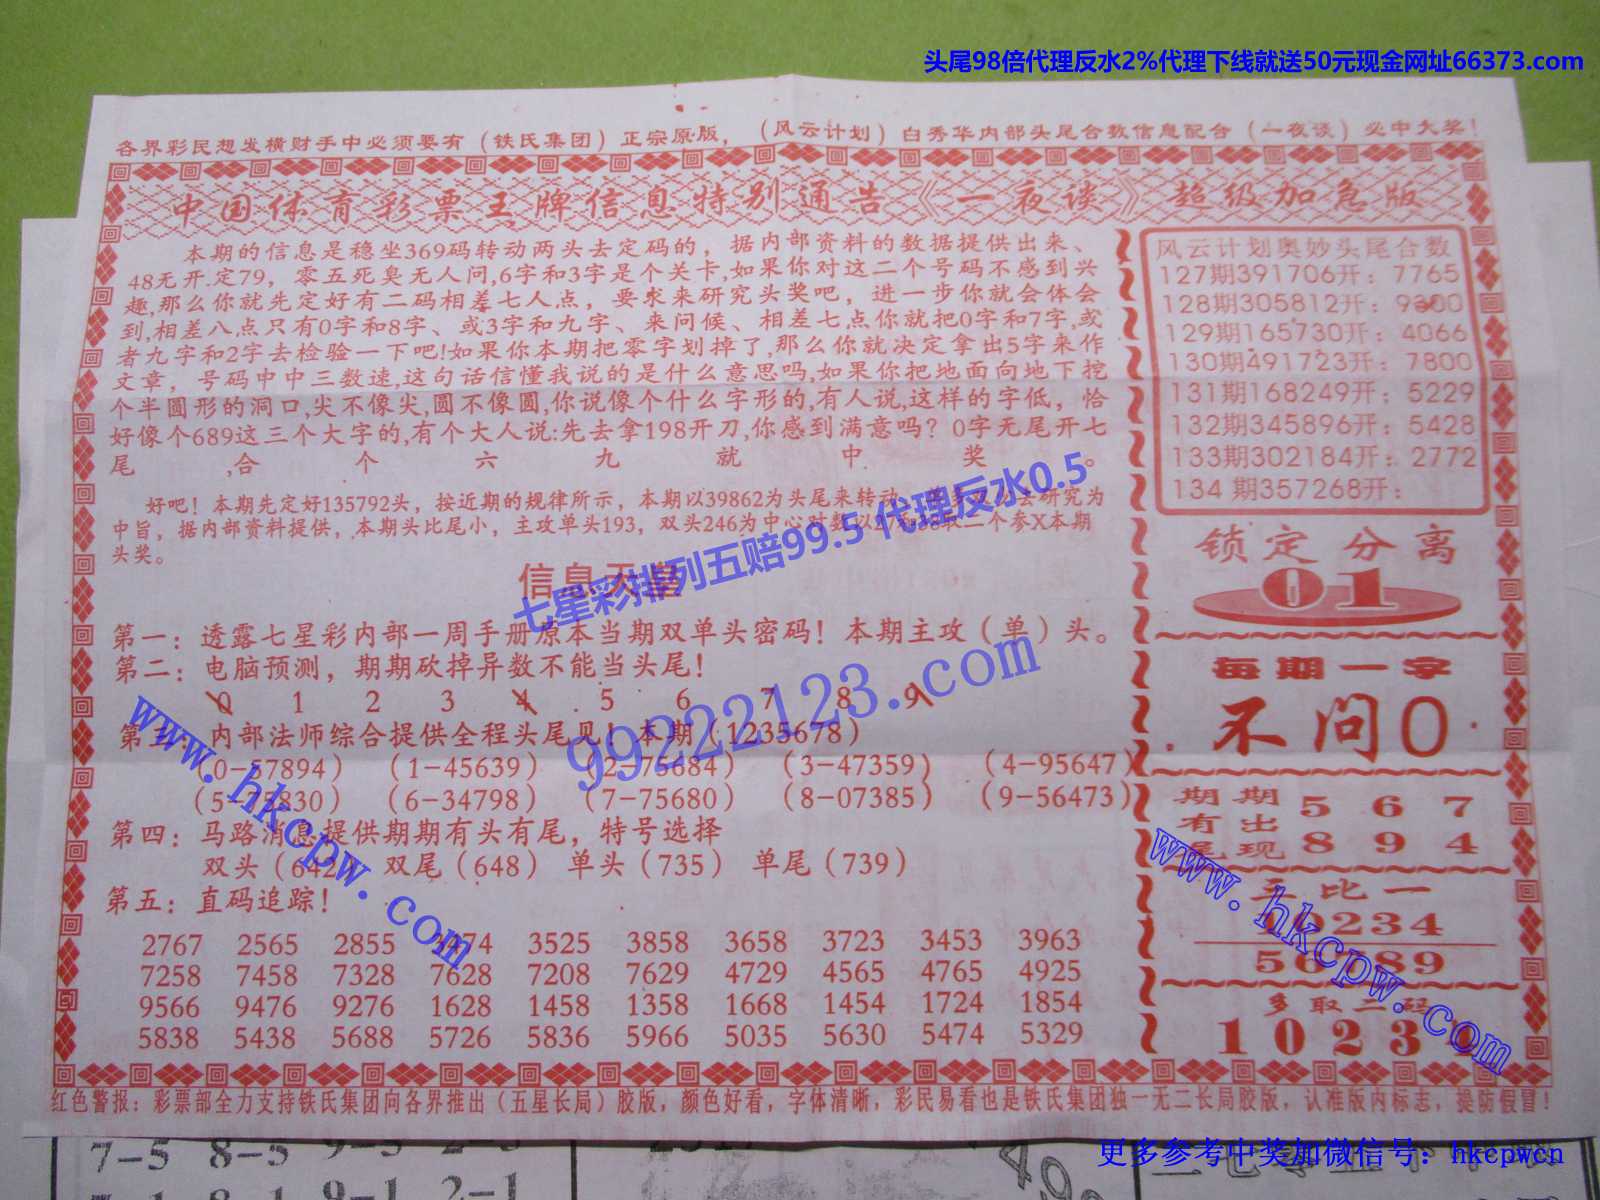 头尾98倍代理反水2%代理下线就送50元现金网址66373.com
各界彩民想发横财手中必须要有（铁氏集团）正宗原版，（风云计划）白秀华内部头尾合数信息配合（一夜谈）必中大奖！
中国体育彩票王牌信息特别通告《一夜谈》超级加急版
本期的信息是稳坐369码转动两头去定码的，据内部资料的数据提供出来、
48无开.定79，零五死臭无人问,6字和3字是个关卡,如果你对这二个号码不感到兴
趣,那么你就先定好有二码相差七人点，要求来研究头奖吧，进一步你就会体会
到,相差八点只有0字和8字、或3字和九字、来问候、相差七点你就把0字和7字,或
者九字和2字去检验一下吧!如果你本期把零字划掉了,那么你就决定拿出5字来作
文章，号码中中三数速,这句话信懂我说的是什么意思吗,如果你把地面向地下挖
个半圆形的洞口,尖不像尖,圆不像圆,你说像个什么字形的,有人说,这样的字低，恰
好像个689这三个大字的,有个大人说:先去拿198开刀,你感到满意吗？0字无尾开七
尾,合个六九就中奖。
好吧！本期先定好135792头，按近期的规律所示，本期以39862为头尾来转动、
研究为
中旨，据内部资料提供，本期头比尾小，主攻单头193，双头246为中心
取二个参X本期
头奖。
七星彩排列五赔99.5 代理反水0.5
信息天
第一：透露七星彩内部一周手册原本当期双单头密码！本期主攻（单）头。
第二：电脑预测，期期砍掉异数不能当头尾！
0 1 2 3 4 5 6 7 8 9
99222123.com
第三：内部法师综合提供全程头尾见！本期（1235678）
（0-57894）（1-45639）（2-75684）（3-47359）（4-95647）
（5-75830）（6-34798）（7-75680）（8-07385）（9-56473）
第四：马路消息提供期期有头有尾，特号选择
双头（642）双尾（648）单头（735）单尾（739）
第五：直码追踪！
2767 2565 2855 3474 3525 3858 3658 3723 3453 3963
7258 7458 7328 7628 7208 7629 4729 4565 4765 4925
9566 9476 9276 1628 1458 1358 1668 1454 1724 1854
5838 5438 5688 5726 5836 5966 5035 5630 5474 5329
www.hkcpw.com
风云计划奥妙头尾合数
127期391706开：7765
128期305812开：9300
129期165730开：4066
130期491723开：7800
131期168249开：5229
132期345896开：5428
133期302184开：2772
134期357268开：
锁定分离
01
每期一字
不问0
期期 5 6 7
有出
尾现 8 9 4
三比一
10234
56789
多取二码
10234
www.hkcpw.com
红色警报：彩票部全力支持铁氏集团向各界推出（五星长局）胶版，颜色好看，字体清晰，彩民易看也是铁氏集团独一无二长局胶版，认准版内标志，提防假冒！
更多参考中奖加微信号：hkcpwcn
7-5 8-5 9-5 2-5
9-1 2-1